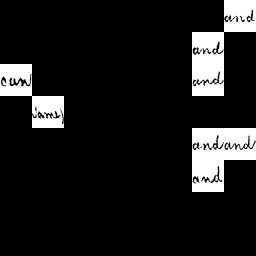 and
and
can and
James)
and and
and